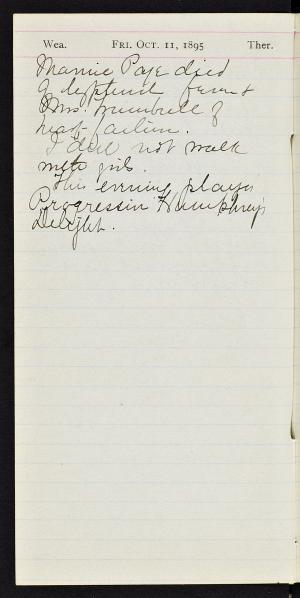 Wea. FRI. OCT. 11, 1895 Ther.
Mamie Page died
of typhoid fever &
Mrs. Trumbull of
heart failure.
I did not walk
with girls.
This evening played
Progressive Humphrey's
Delight.